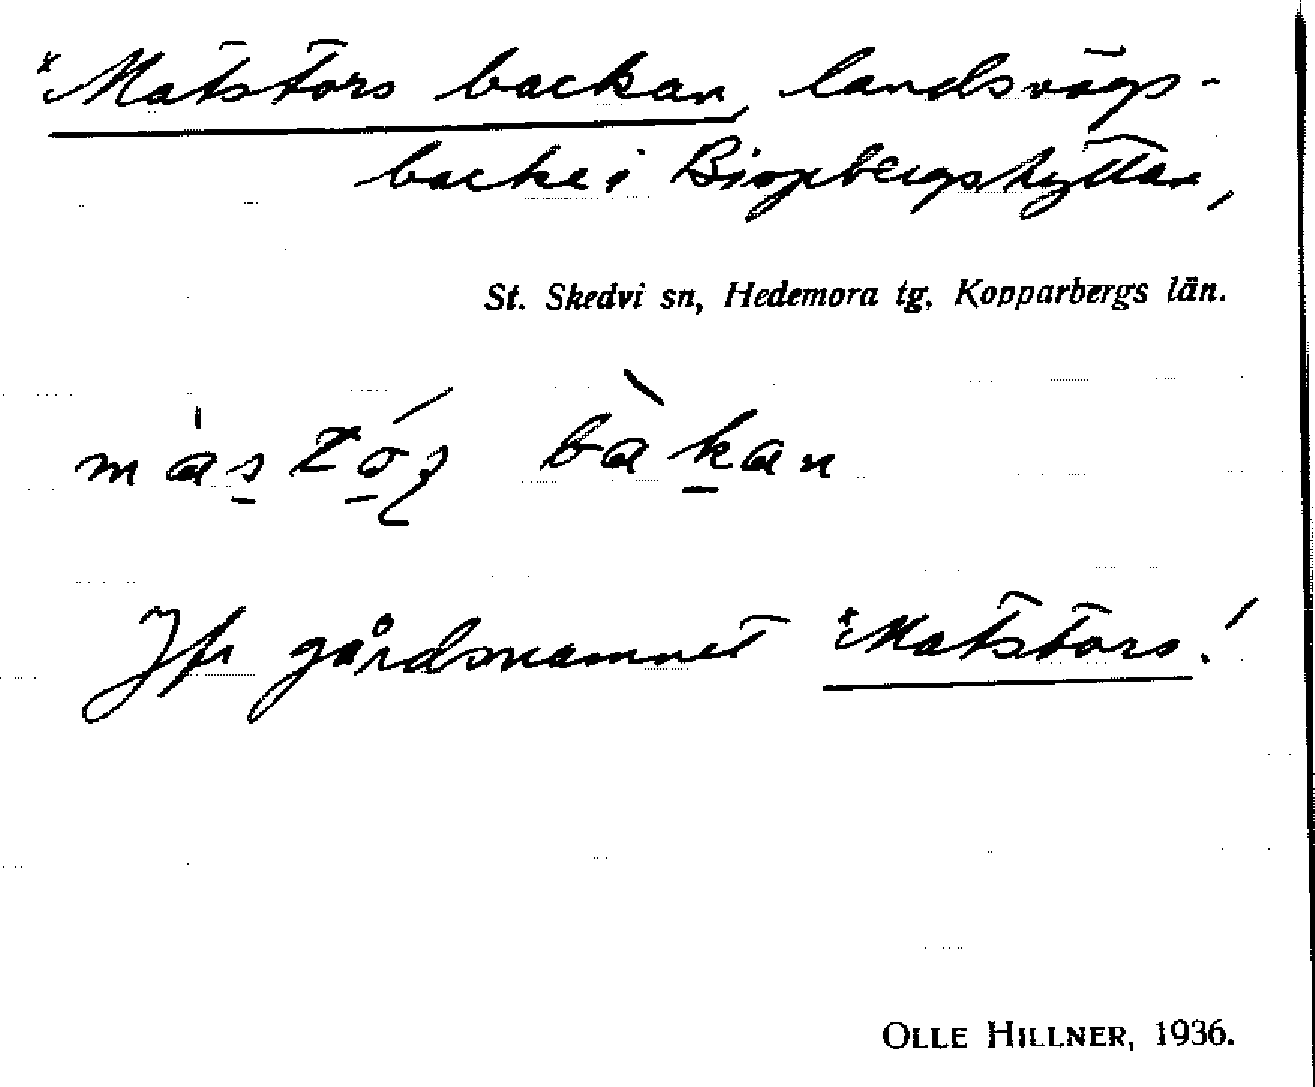 *Matstors backan, landsvägs-
backe i Bispbergshyttan,
St. Skedvi sn, Hedemora tg, Kopparbergs län.
bàkan
Jfr gårdsnamnet *Matstors!
OLLE HILLNER, 1936.